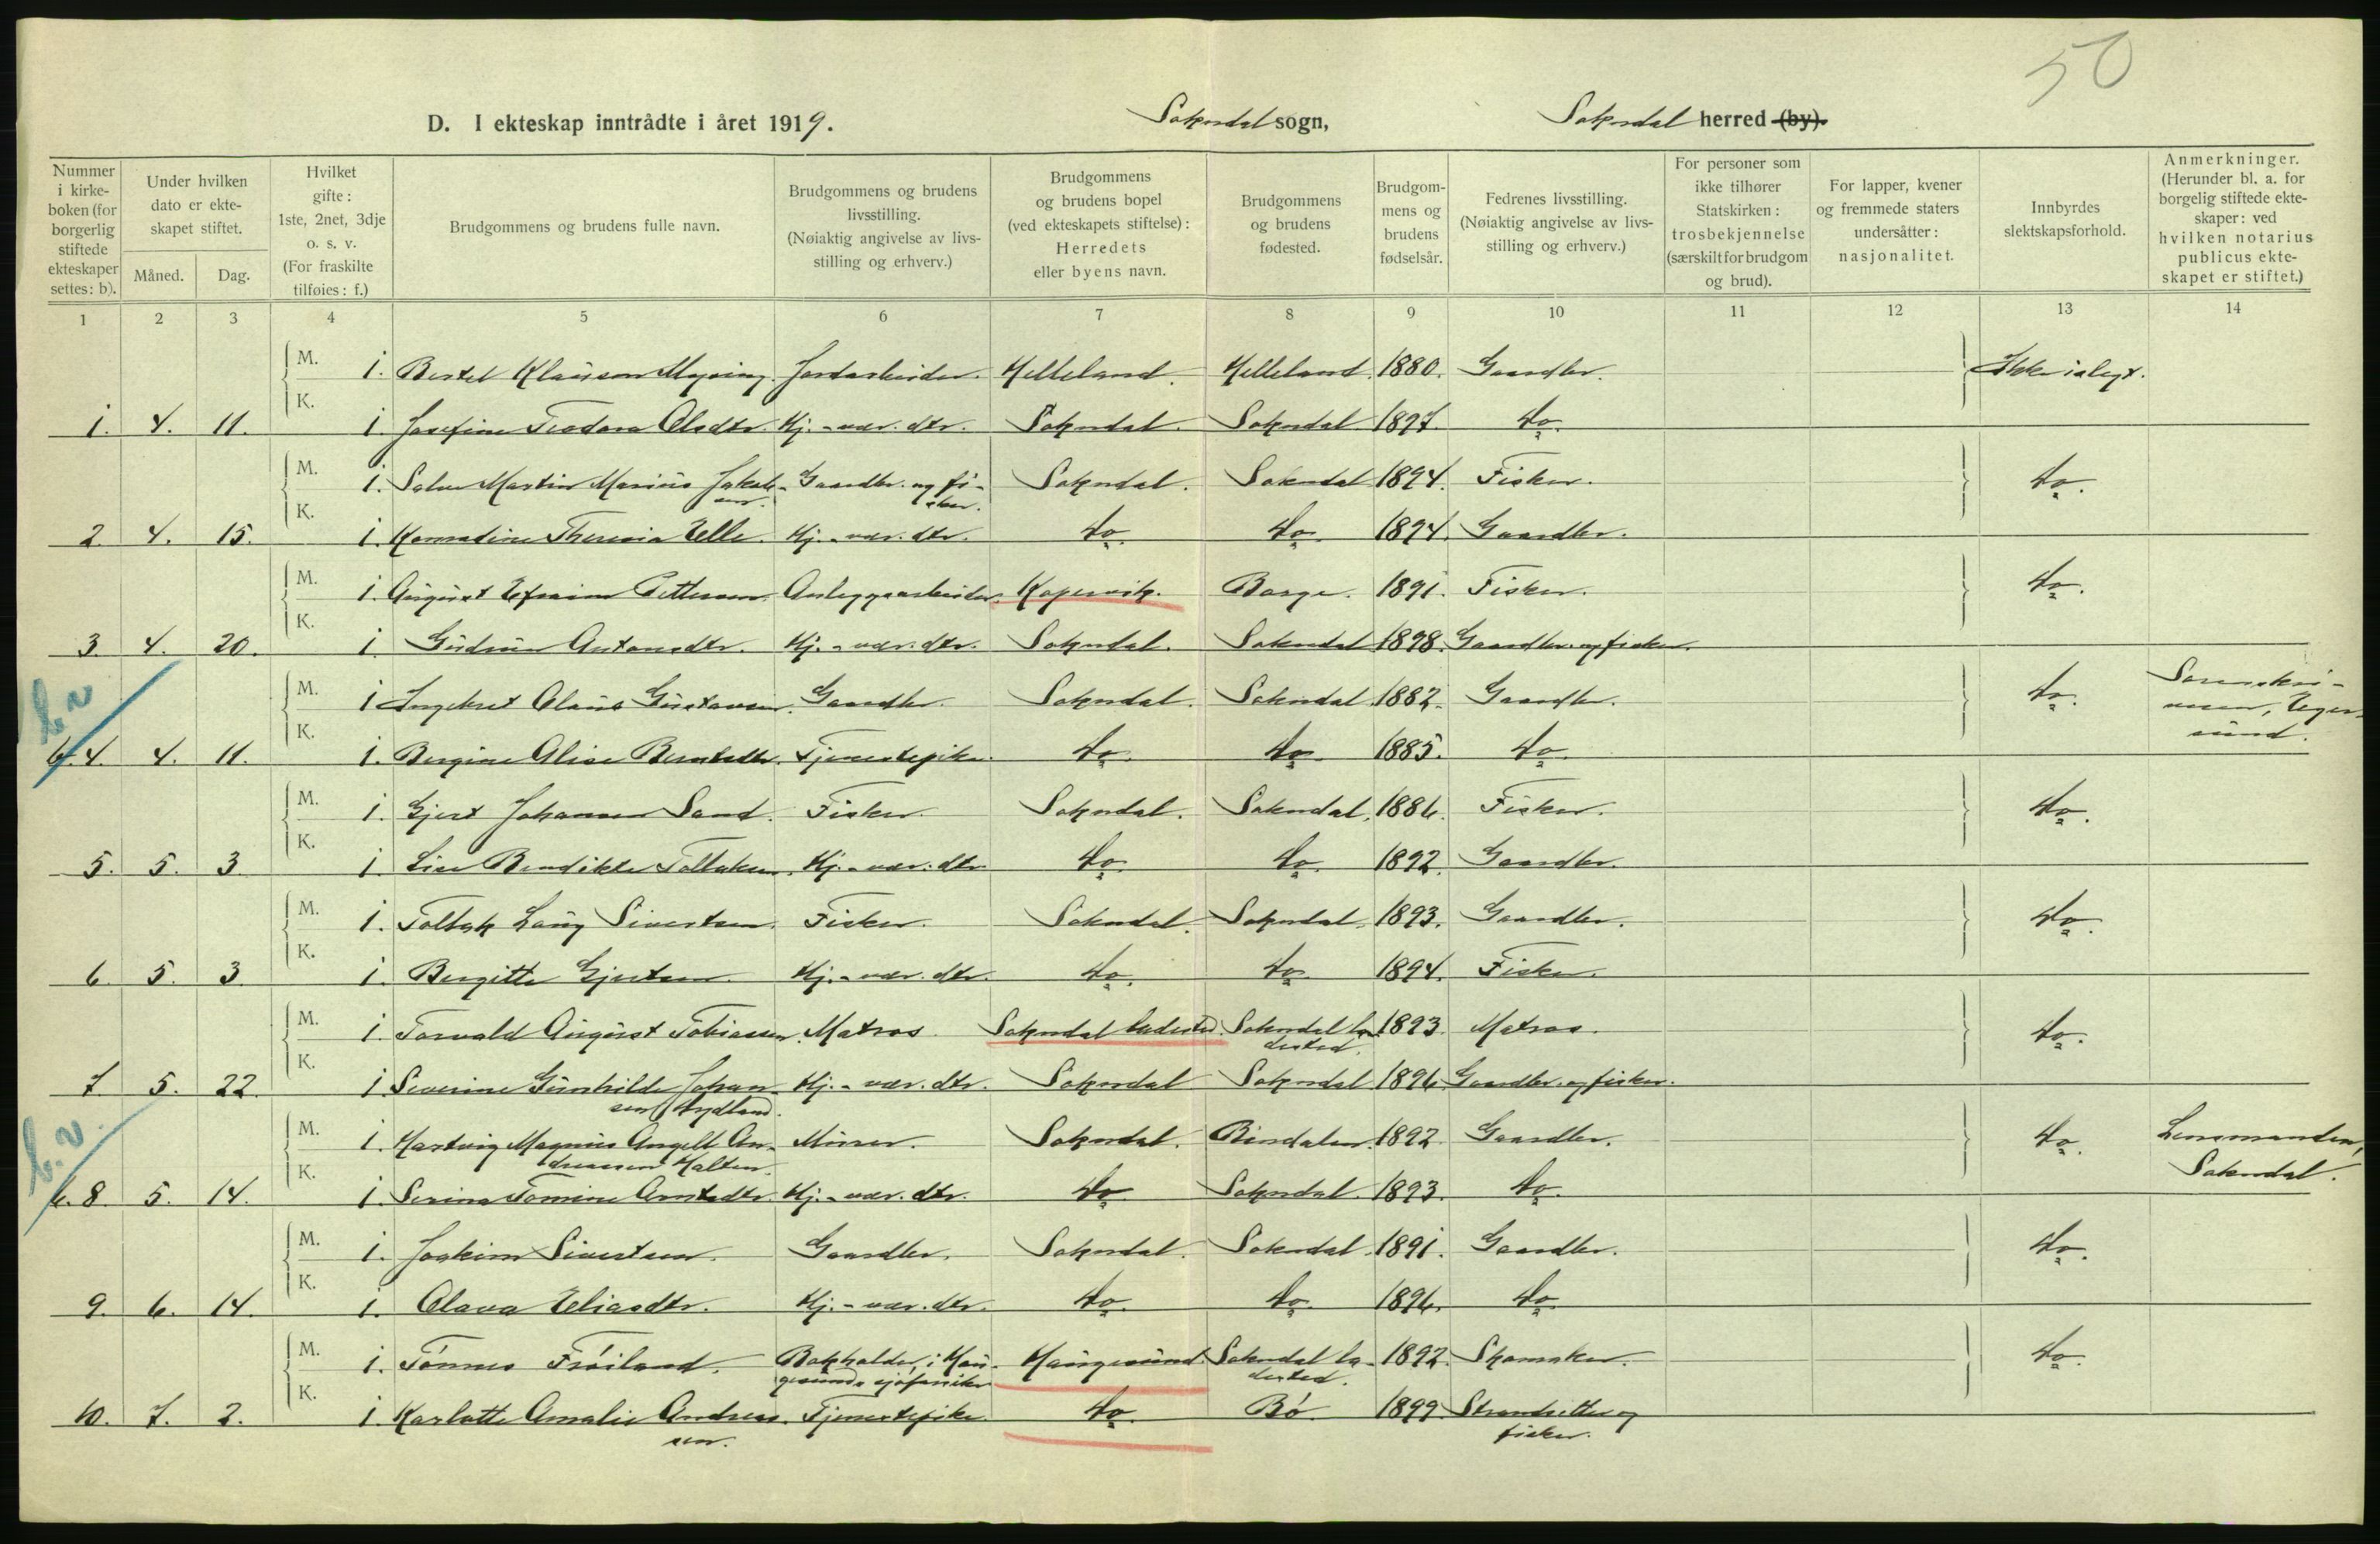 50
D. I ekteskap inntrådte i året 1919. Sokndal sogn, Sokndal herred (by).
Nummer i kirkeboken (for borgerlig stiftede ekteskaper settes: b).
Under hvilken dato er ekteskapet stiftet.
Måned. Dag.
Hvilket gifte: 1ste, 2net, 3dje o. s. v. (For fraskilte tilføies: f.)
Brudgommens og brudens fulle navn.
Brudgommens og brudens livsstilling. (Nøiaktig angivelse av livsstilling og erhverv.)
Brudgommens og brudens bopel (ved ekteskapets stiftelse): Herredets eller byens navn.
Brudgommens og brudens fødested.
Brudgommens og brudens fødselsår.
Fedrenes livsstilling. (Nøiaktig angivelse av livsstilling og erhverv.)
For personer som ikke tilhører Statskirken: trosbekjennelse (særskilt for brudgom og brud).
For lapper, kvener og fremmede staters undersåtter: nasjonalitet.
Innbyrdes slektskapsforhold.
Anmerkninger. (Herunder bl. a. for borgelig stiftede ekteskaper: ved hvilken notarius publicus ekteskapet er stiftet.)
1 2 3 4 5 6 7 8 9 10 11 12 13 14
M. 1. Bertel Klausen Mysing. Jordarbeider. Helleland. Helleland. 1880. Gaardbr. Ikke i slegt.
1. 4. 11. K. 1. Josefine Teodora Olsdtr. Hj.-vær. dtr. Sokndal. Sokndal 1897. do.
M. 1. Salve Martin Marius Jakobsen. Gaardbr. og fisker. Sokndal. Sokndal 1894. Fisker. do.
2. 4. 15. K. 1. Konradine Theresia Elle. Hj.-vær. dtr. do. do. 1894. Gaardbr.
M. 1. August Efraim Pettersen. Anleggsarbeider. Kopervik. Borge. 1891. Fisker. do.
3. 4. 20. K. 1. Gudrun Antonsdtr. Hj.-vær. dtr. Sokndal. Sokndal 1898. Gaardbr. og fisker.
b.v
M. 1 Ingebret Olaus Gustavsen. Gaardbr. Sokndal. Sokndal 1882. Gaardbr. do. Sorenskriveren, Egersund.
b. 4. 4. 11. K. 1. Bergine Elise Berntsdtr. Tjenestepike. do. do. 1885. do.
M. 1. Gjert Johannes Sand. Fisker. Sokndal. Sokndal. 1886. Fisker. do.
5. 5. 3. K. 1. Lise Bendikte Tollaksen. Hj.-vær. dtr. do. do. 1892. Gaardbr.
M. 1. Tollak Laug Sivertsen. Fisker. Sokndal. Sokndal. 1893. Gaardbr. do.
6. 5. 3. K. 1. Bergitte Gjertsen. Hj.-vær. dtr. do. do. 1894. Fisker.
M. 1. Torvald August Tobiassen. Matros. Sokndal ladested. Sokndal ladested. 1893. Matros. do.
7. 5. 22. K. 1. Severine Gunhilde Johansen Hydland. Hj.-vær. dtr. Sokndal Sokndal 1896. Gaardbr. og fisker.
b.v.
M. 1. Hartvig Magnus Angell Andreassen Halten. Minør. Sokndal. Bindalen. 1892 Gaardbr. do. Lensmanden, Sokndal.
b. 8. 5. 14. K. 1. Serina Tomine Arntsdtr. Hj.-vær. dtr. do. Sokndal. 1893. do.
M. 1. Joakim Sivertsen. Gaardbr. Sokndal. Sokndal. 1891. Gaardbr. do.
9. 6. 14. K. 1. Olava Eliasdtr. Hj.-vær. dtr. do. do. 1896. do.
M. 1. Tønnes Frøiland. Bokholder, i Haugesunds Haugesund. Sokndal ladested. 1892. Skomaker. do.
10. 7. 2. K. 1. Karlotte Amalie Andreassen. Tjenestepike. do. Bø. 1899. Strandsitter og fisker.